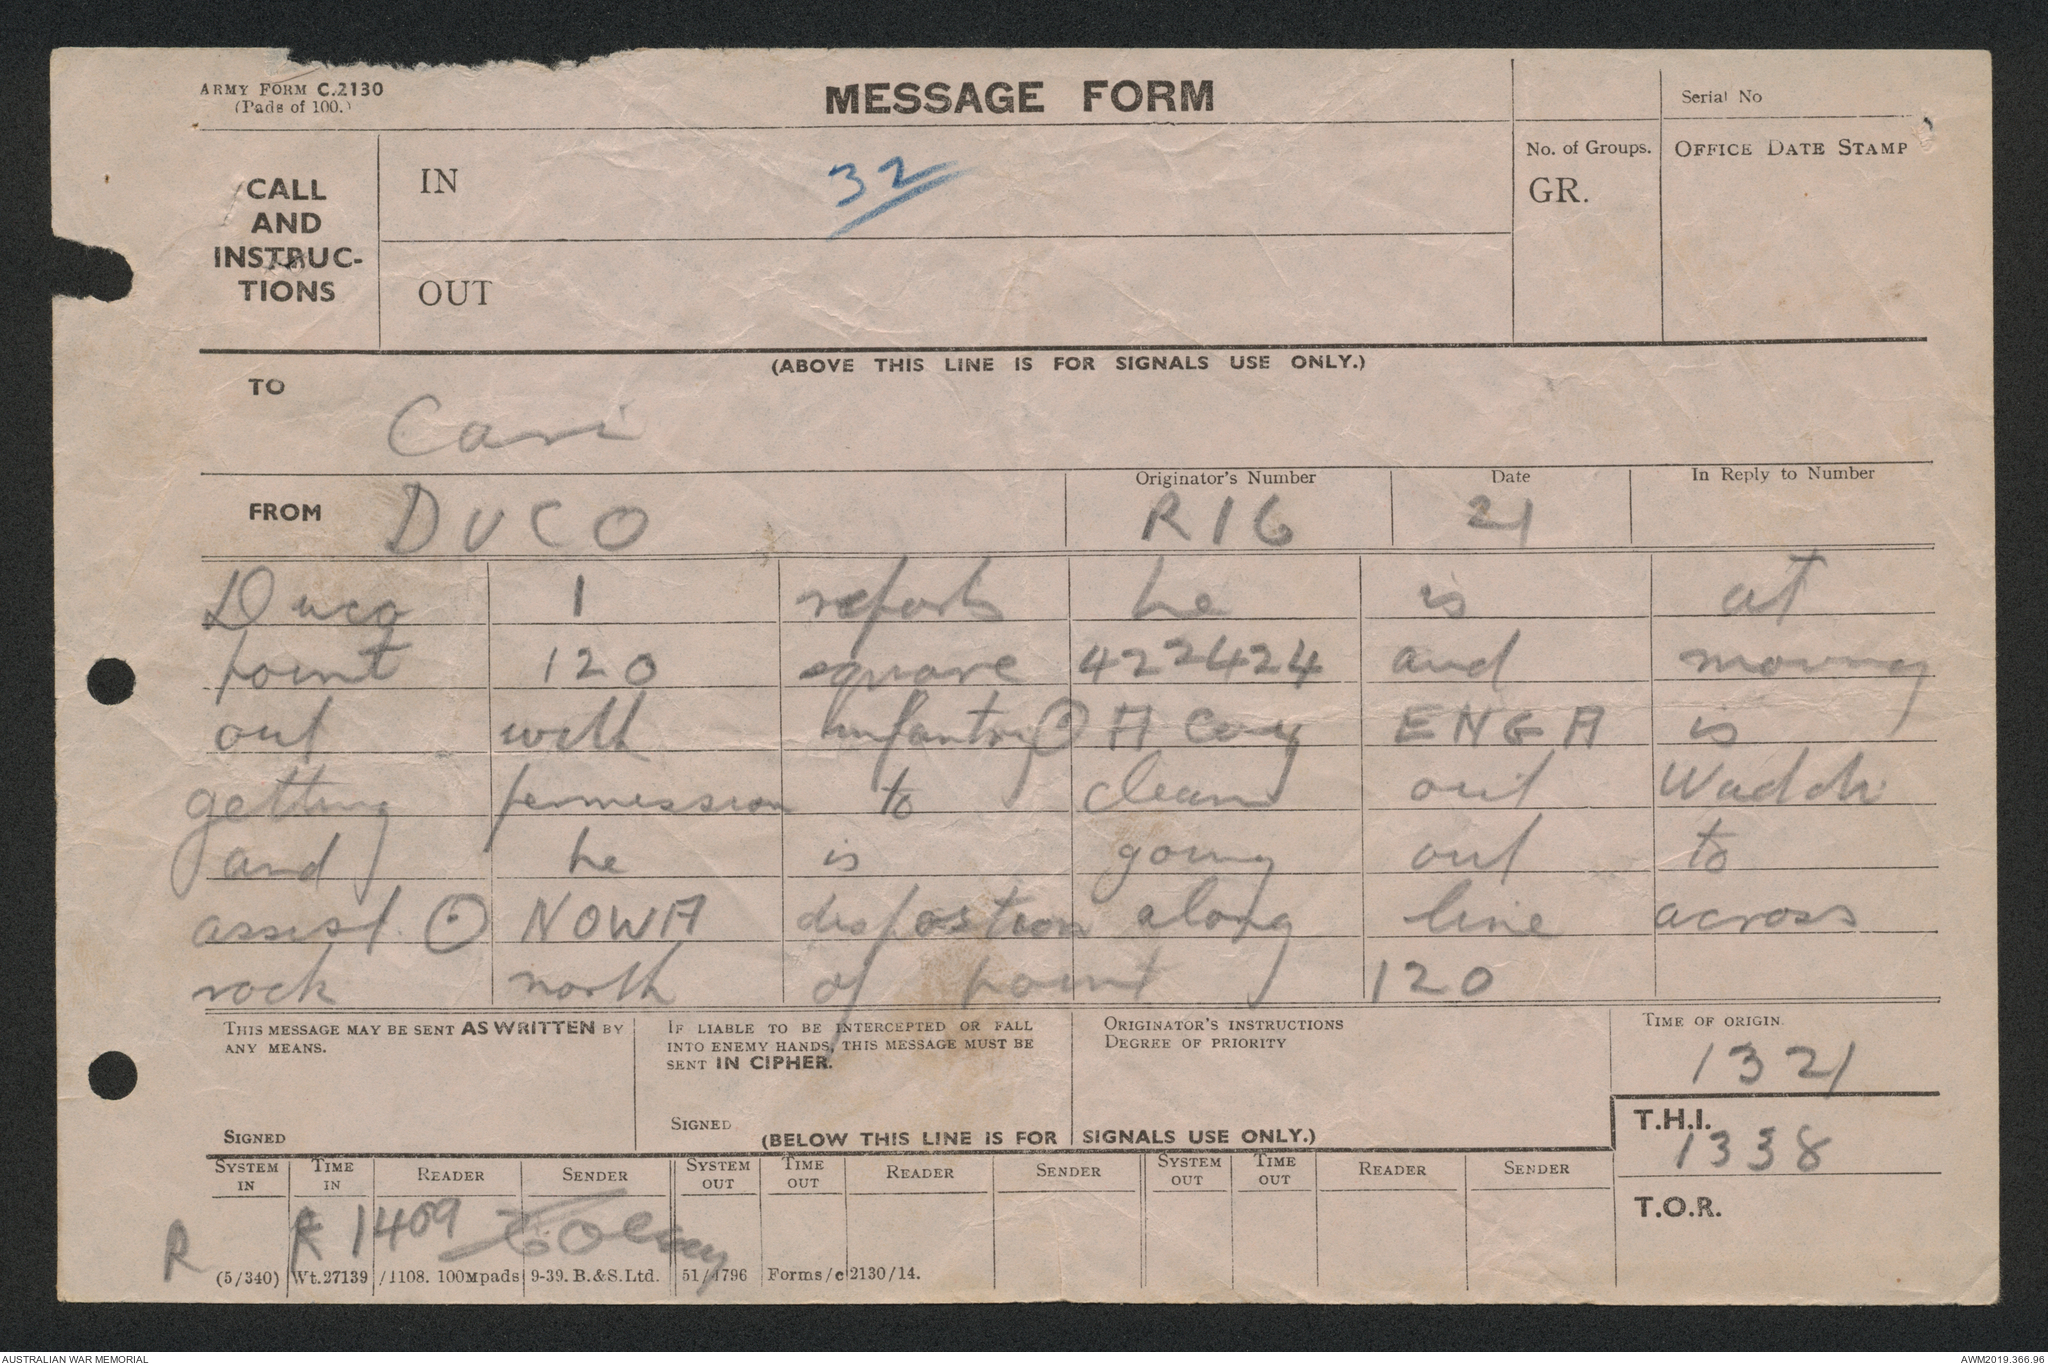 ARMY FORM C.2130
(Pads of 100.)
MESSAGE FORM
Serial No
CALL
AND
INSTRUC-
TIONS
IN
32
No. of Groups.
GR.
OFFICE DATE STAMP
OUT
(ABOVE THIS LINE IS FOR SIGNALS USE ONLY.)
TO
Cani
FROM
DUCO
Originator's Number
R16
Date
21
In Reply to Number
Duco 1 reports he is at
point 120 square 422424 and moving
out with infantry ⊙ A Coy ENGA is
getting permission to clean out Waddi
and he is going out to
assist. ⊙ NOWA dispostion along line across
rock north of point 120
THIS MESSAGE MAY BE SENT AS WRITTEN BY
ANY MEANS.
SIGNED
IF LIABLE TO BE INTERCEPTED OR FALL
INTO ENEMY HANDS, THIS MESSAGE MUST BE
SENT IN CIPHER.
SIGNED
ORIGINATOR'S INSTRUCTIONS
DEGREE OF PRIORITY
TIME OF ORIGIN.
1321
T.H.I.
1338
(BELOW THIS LINE IS FOR SIGNALS USE ONLY.)
SYSTEM IN TIME IN READER SENDER SYSTEM OUT TIME OUT READER SENDER SYSTEM OUT TIME OUT READER SENDER
T.O.R.
R R 1409
(5/340) Wt.27139/1108. 100Mpads 9-39. B.&S.Ltd. 51/4796 Forms/c2130/14.
AUSTRALIAN WAR MEMORIAL
AWM2019.366.96